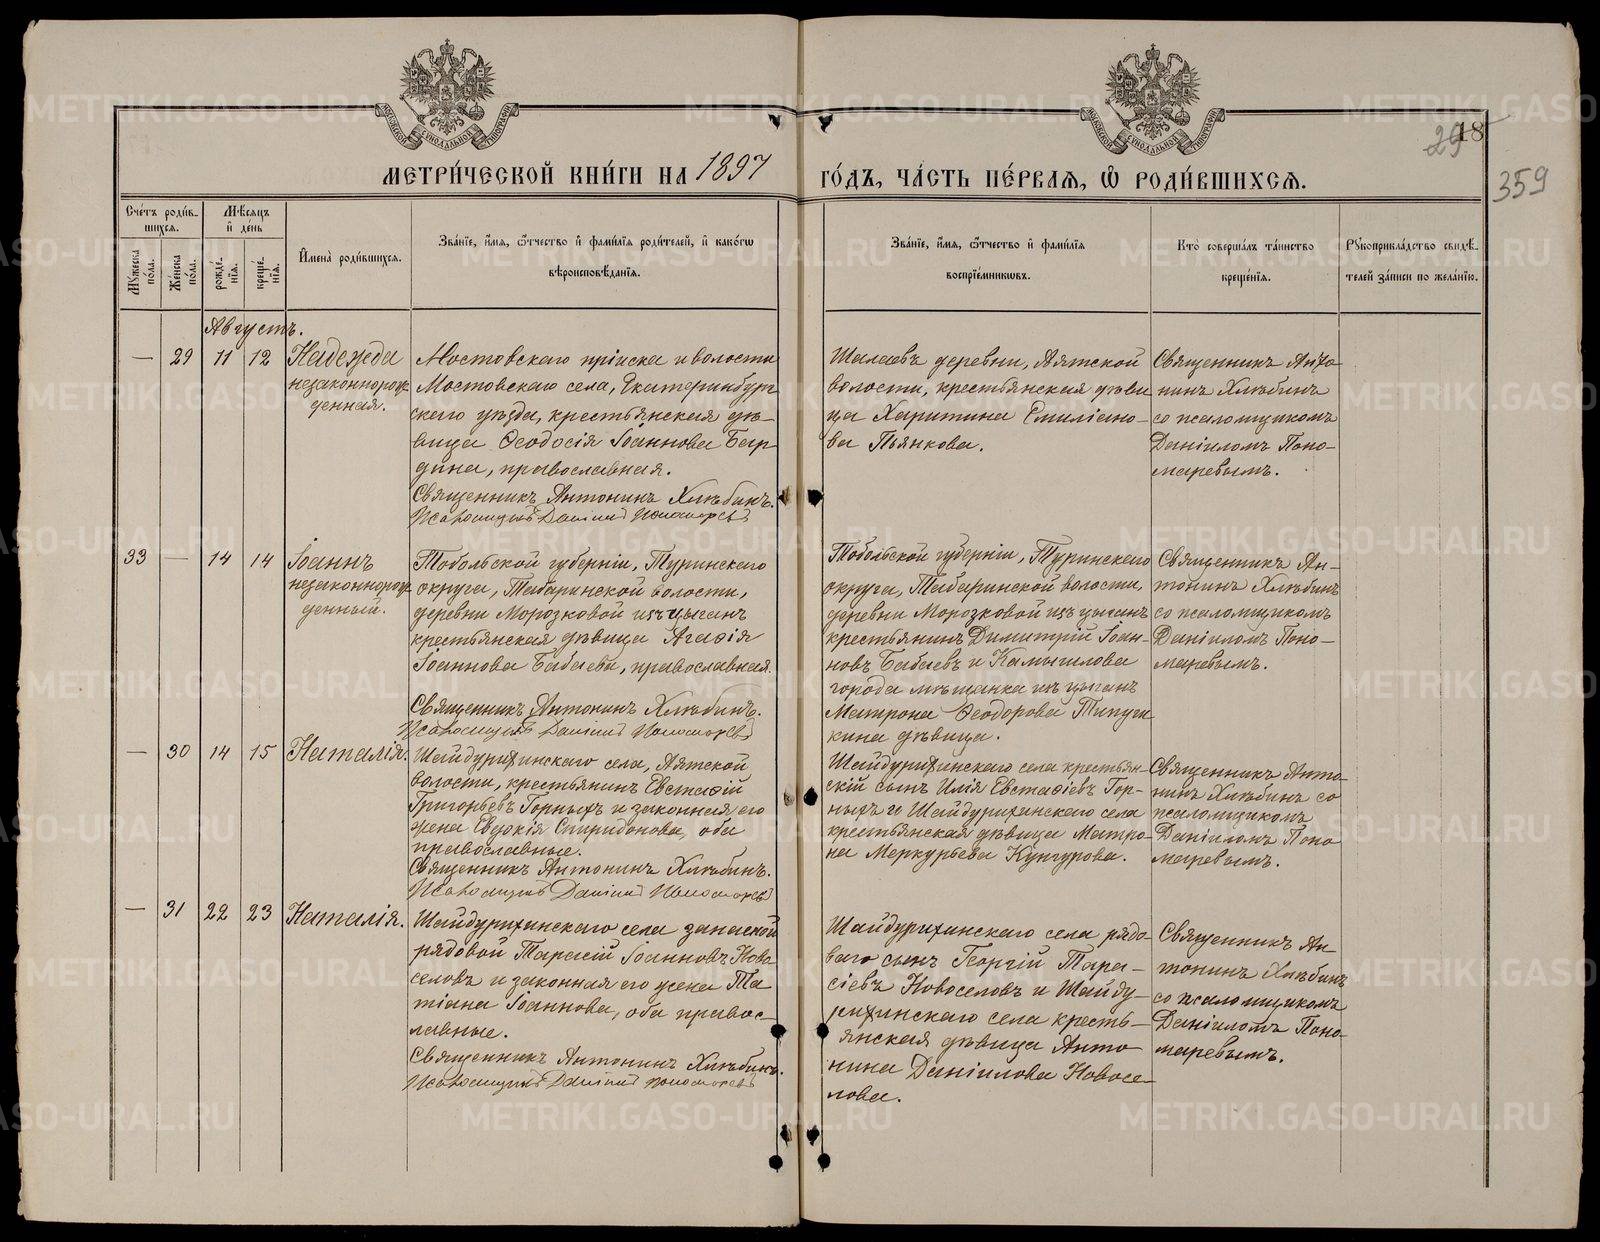 МЕТРИ́ЧЕСКОЙ КНИ́ГИ НА 1897 ГО́ДЪ, ЧА́СТЬ ПЕ́РВАЯ, Ѿ РОДИ́ВШИХСЯ.
29 18
359
Сче́тъ роди́в-
шихся.
Мꙋ́жеска по́ла.
Же́нска по́ла.
Мѣ́сяцъ
и҆ де́нь
рожде́-
нїя.
креще́-
нїя.
И҆мена̀ роди́вшихся.
Зва́нїе, и҆́мя, ѻ҆́тчество и҆ фами́лїя роди́телей, и҆ како́гѡ
вѣроисповѣ́данїя.
Зва́нїе, и҆́мя, ѻ҆́тчество и҆ фами́лїя
воспрїе́мникѡвъ.
Кто̀ соверша́лъ та́инство
креще́нїя.
Рꙋкоприкла́дство свидѣ́-
телей за́писи по жела́нїю.
Августъ.
— 29 11 12
Надежда
незаконнорож-
денная.
Мостовскаго пріиска и волости
Мостовскаго села, Екатеринбург-
скаго уѣзда, крестьянская дѣ-
вица Ѳеодосія Іоаннова Бар-
дина, православная.
Священникъ Антонинъ Хлѣбинъ.
Псаломщикъ Даніилъ Пономаревъ
Шалаевъ деревни, Аятской
волости, крестьянская дѣви
ца Харитина Емиліано-
ва Пьянкова.
Священникъ Анто
нинъ Хлѣбинъ
со псаломщикомъ
Даніиломъ Поно-
маревымъ.
33 — 14 14
Іоаннъ
незаконнорож-
денный.
Тобольской губерніи, Туринскаго
округа, Табаринской волости,
деревни Морозковой изъ цыганъ
крестьянская дѣвица Агаѳія
Іоаннова Бабаева, православная.
Священникъ Антонинъ Хлѣбинъ.
Псаломщикъ Даніилъ Пономаревъ
Тобольской губерніи, Туринскаго
округа, Табаринской волости,
деревни Морозковой изъ цыганъ
крестьянинъ Димитрій Іоан-
новъ Бабаевъ и Камышлова
города мѣщанка изъ цыганъ
Матрона Ѳеодорова
кина дѣвица.
Священникъ Ан-
тонинъ Хлѣбинъ
со псаломщикомъ
Даніиломъ Поно-
маревымъ.
— 30 14 15
Наталія.
Шайдурихинскаго села, Аятской
волости, крестьянинъ Евстаѳій
Григорьевъ Горныхъ и законная его
жена Евдокія Спиридонова, оба
православные.
Священникъ Антонинъ Хлѣбинъ.
Псаломщикъ Даніилъ Пономаревъ
Шайдурихинскаго села крестьян-
скій сынъ Илія Евстаѳіевъ Гор-
ныхъ и Шайдурихинскаго села
крестьянская дѣвица Матро-
на Меркурьева Кунгурова.
Священникъ Анто
нинъ Хлѣбинъ со
псаломщикомъ
Даніиломъ Поно
маревымъ.
— 31 22 23
Наталія.
Шайдурихинскаго села запасной
рядовой Тарасій Іоанновъ Ново
селовъ и законная его жена Та
тіана Іоаннова, оба правос-
лавные.
Священникъ Антонинъ Хлѣбинъ.
Псаломщикъ Даніилъ Пономаревъ
Шайдурихинскаго села рядо
ваго сынъ Георгій Тара-
сіевъ Новоселовъ и Шайду-
рихинскаго села кресть-
янская дѣвица Анто
нина Даніилова Новосе-
лова.
Священникъ Ан-
тонинъ Хлѣбинъ
со псаломщикомъ
Даніиломъ Поно-
маревымъ.